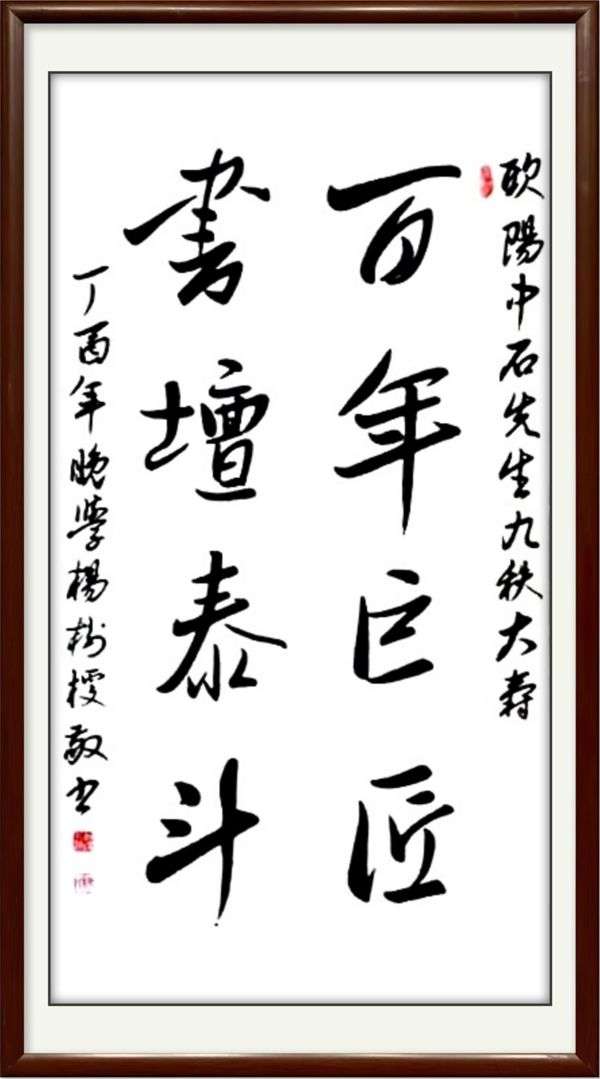 欧陽中石先生九秩大壽
百年巨匠
書壇泰斗
丁酉年晚學楊樹授敬書